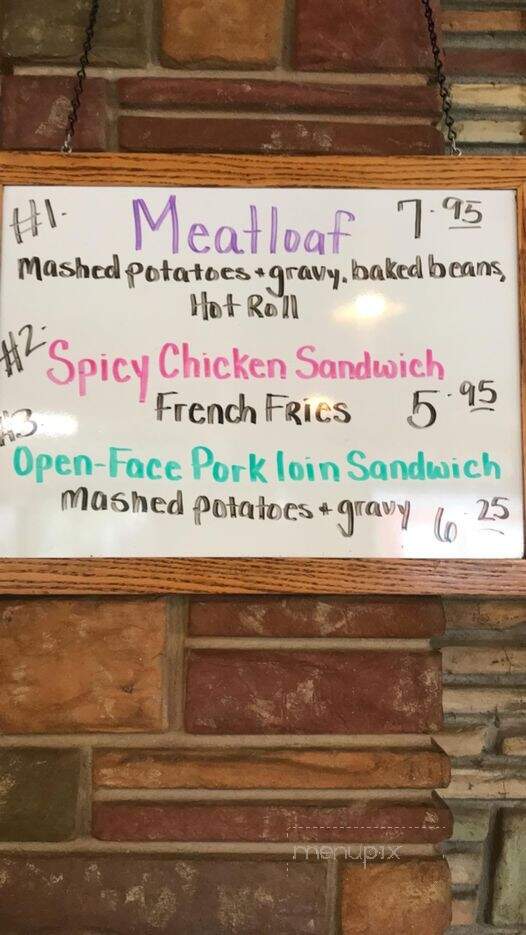 #1. Meatloaf 7.95
Mashed potatoes + gravy, baked beans,
Hot Roll
#2. Spicy Chicken Sandwich
French Fries 5.95
#3.
Open-Face Pork loin Sandwich
Mashed potatoes + gravy 6.25
menupix